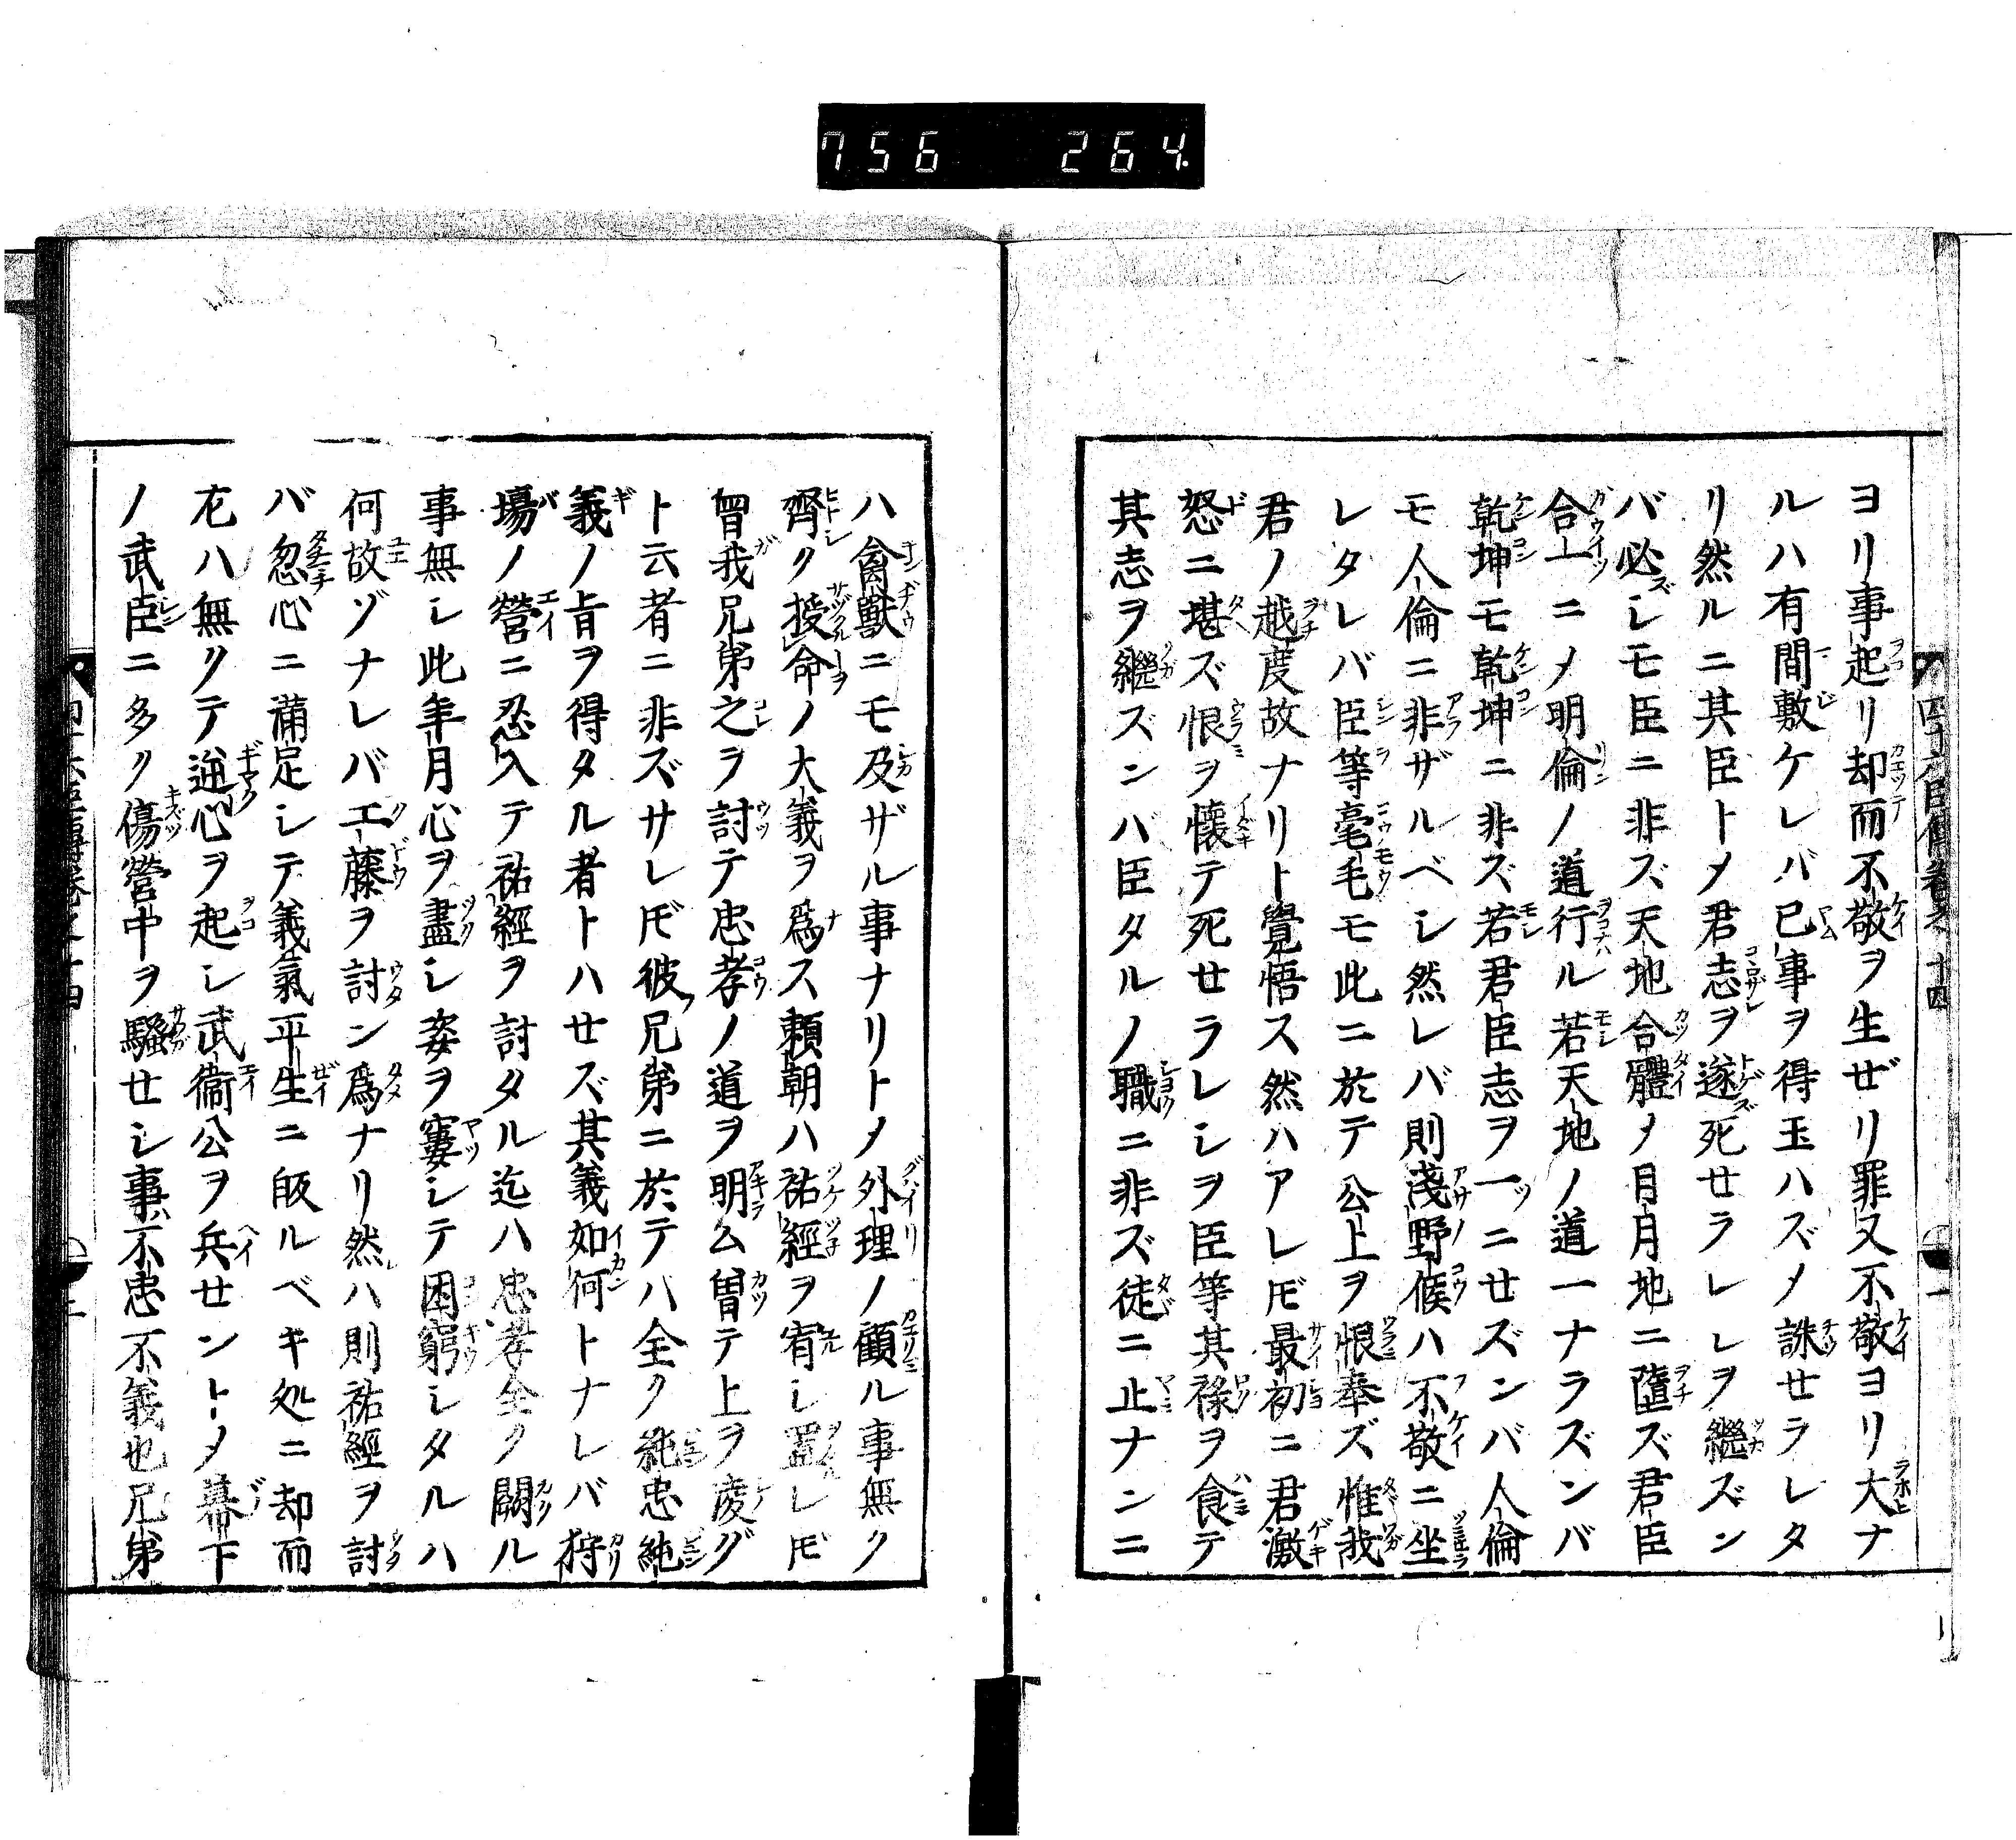 756 264
ヨリ事起リ却而不敬ヲ生ゼリ罪又不敬ヨリ大ナ
ルハ有間敷ケレバ已事ヲ得玉ハズメ誅セラレタ
リ然ルニ其臣トメ君志ヲ遂ズ死セラレレヲ繼ズン
バ必シモ臣ニ非ズ天地合體メ月月地ニ墮ズ君臣
合一ニメ明倫ノ道行ル若天地ノ道一ナラズンバ
乾坤モ乾坤ニ非ズ若君臣志ヲ一ニセズンバ人倫
モ人倫ニ非ザルベシ然レバ則淺野候ハ不敬ニ坐
レタレバ臣等毫毛モ此ニ於テ公上ヲ恨奉ズ惟我
君ノ越度故ナリト覺悟ス然ハアレ𪜈最初ニ君激
怒ニ堪ズ恨ヲ懐テ死セラレシヲ臣等其禄ヲ食テ
其志ヲ繼ズンバ臣タルノ職ニ非ズ徒ニ止ナンニ
ハ禽獸ニモ及ザル事ナリトメ外理ノ顧ル事無ク
齊ク授命ノ大義ヲ爲ス頼朝ハ祐經ヲ宥シ置レ𪜈
曽我兄弟之ヲ討テ忠孝ノ道ヲ明ム曽テ上ヲ度グ
ト云者ニ非ズサレ𪜈彼兄弟ニ於テハ全ク純忠純
義ノ旨ヲ得タル者トハセズ其義如何トナレバ狩
場ノ營ニ忍入テ祐經ヲ討タル迄ハ忠孝全ク闕ル
事無シ此年月心ヲ盡シ姿ヲ窶シテ困窮シタルハ
何故ゾナレバ工藤ヲ討ン爲ナリ然ハ則祐經ヲ討
バ忽心ニ滿足シテ義氣平生ニ皈ルベキ処ニ却而
左ハ無クテ逆心ヲ起シ武衞公ヲ兵セントメ幕下
ノ武臣ニ多ク傷營中ヲ騷セシ事不忠不義也兄弟